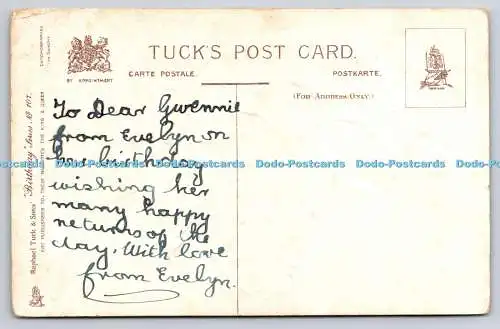 TUCK'S POST CARD.
BY APPOINTMENT
CARTE POSTALE.
POSTKARTE.
(FOR ADDRESS ONLY.)
Raphael Tuck & Sons' "Birthday" Series No 107.
ART PUBLISHERS TO THEIR MAJESTIES THE KING & QUEEN
To Dear Gwennie
from Evelyn on
her birthday
wishing her
many happy
returns of the
day. With love
from Evelyn.
Dodo-Postcards Dodo-Postcards Dodo-Postcards Dodo-Postcards Dodo-Postcards